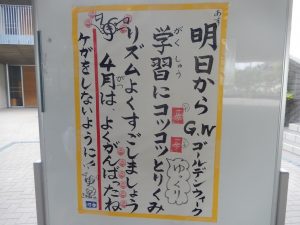 明日から
G.W ゴールデンウィク
学習にコツコツとりくみ
ゆっくり
リズムよくすごしましょう
4月は よくがんばったね
ケガをしないように